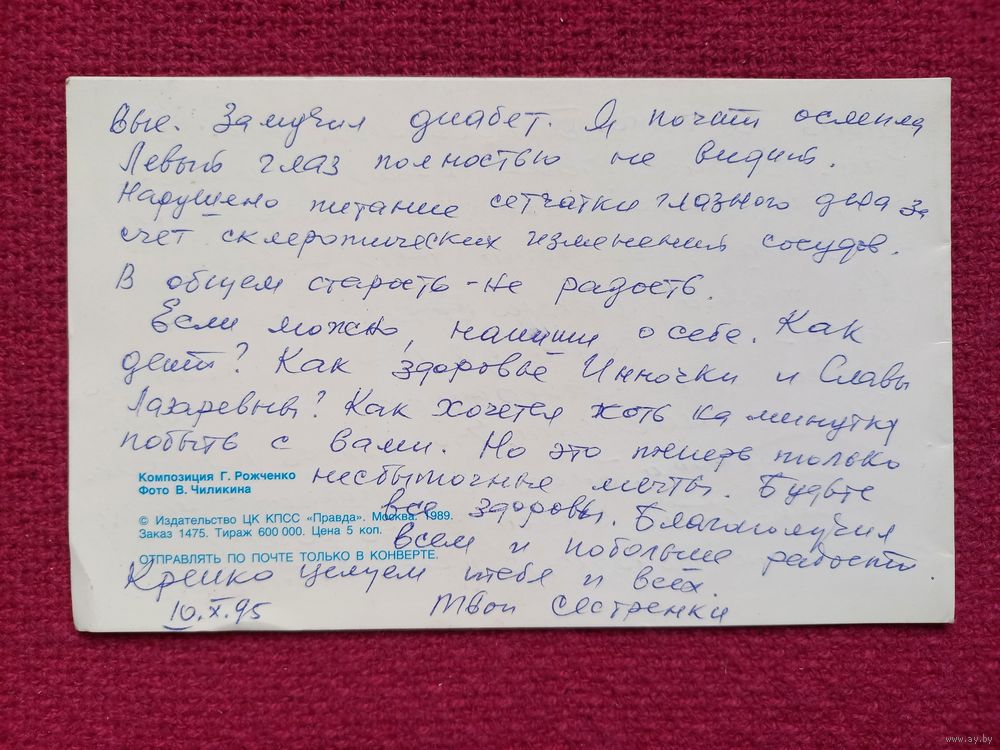 вые. Замучил диабет. Я почти ослепла
Левый глаз полностью не видит.
Нарушено питание сетчатки глазного дна за
счет склеротических изменений сосудов.
В общем старость - не радость.
Если можно, напиши о себе. Как
дети? Как здоровье Инночки и Славы
Лазаревны? Как хочется хоть на минутку
побыть с вами. Но это теперь только
несбыточные мечты. Будьте
все здоровы. Благополучия
всем и побольше радости.
Крепко целуем тебя и всех.
10.X.95 Твои сестренки
Композиция Г. Рожченко
Фото В. Чиликина
© Издательство ЦК КПСС «Правда». Москва. 1989.
Заказ 1475. Тираж 600 000. Цена 5 коп.
ОТПРАВЛЯТЬ ПО ПОЧТЕ ТОЛЬКО В КОНВЕРТЕ.
www.ay.by